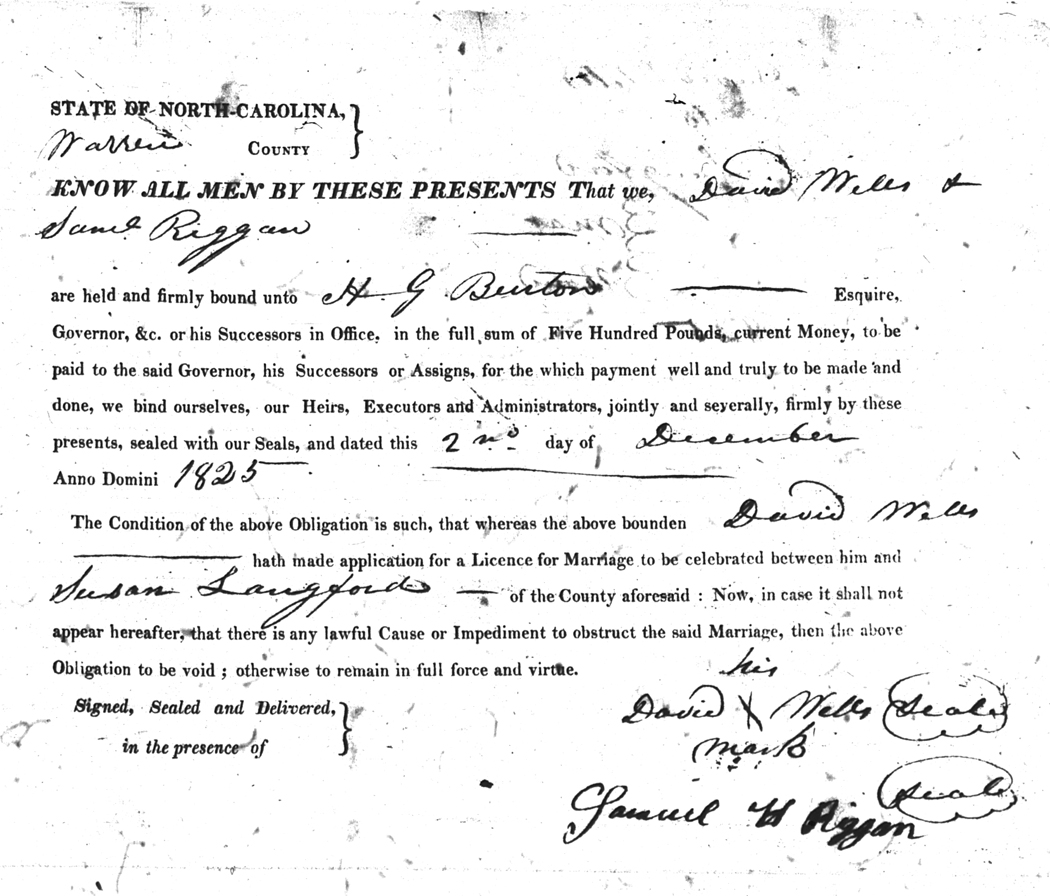 STATE OF NORTH-CAROLINA,
Warren COUNTY
KNOW ALL MEN BY THESE PRESENTS That we, David Wells &
Saml Riggan
are held and firmly bound unto H G Burton Esquire,
Governor, &c. or his Successors in Office, in the full sum of Five Hundred Pounds, current Money, to be
paid to the said Governor, his Successors or Assigns, for the which payment well and truly to be made and
done, we bind ourselves, our Heirs, Executors and Administrators, jointly and severally, firmly by these
presents, sealed with our Seals, and dated this 2nd day of December
Anno Domini 1825
The Condition of the above Obligation is such, that whereas the above bounden David Wells
hath made application for a Licence for Marriage to be celebrated between him and
Susan Langford of the County aforesaid : Now, in case it shall not
appear hereafter, that there is any lawful Cause or Impediment to obstruct the said Marriage, then the above
Obligation to be void ; otherwise to remain in full force and virtue.
his
Signed, Sealed and Delivered, David X Wells Seal
in the presence of mark
Seal
Samuel H Riggan